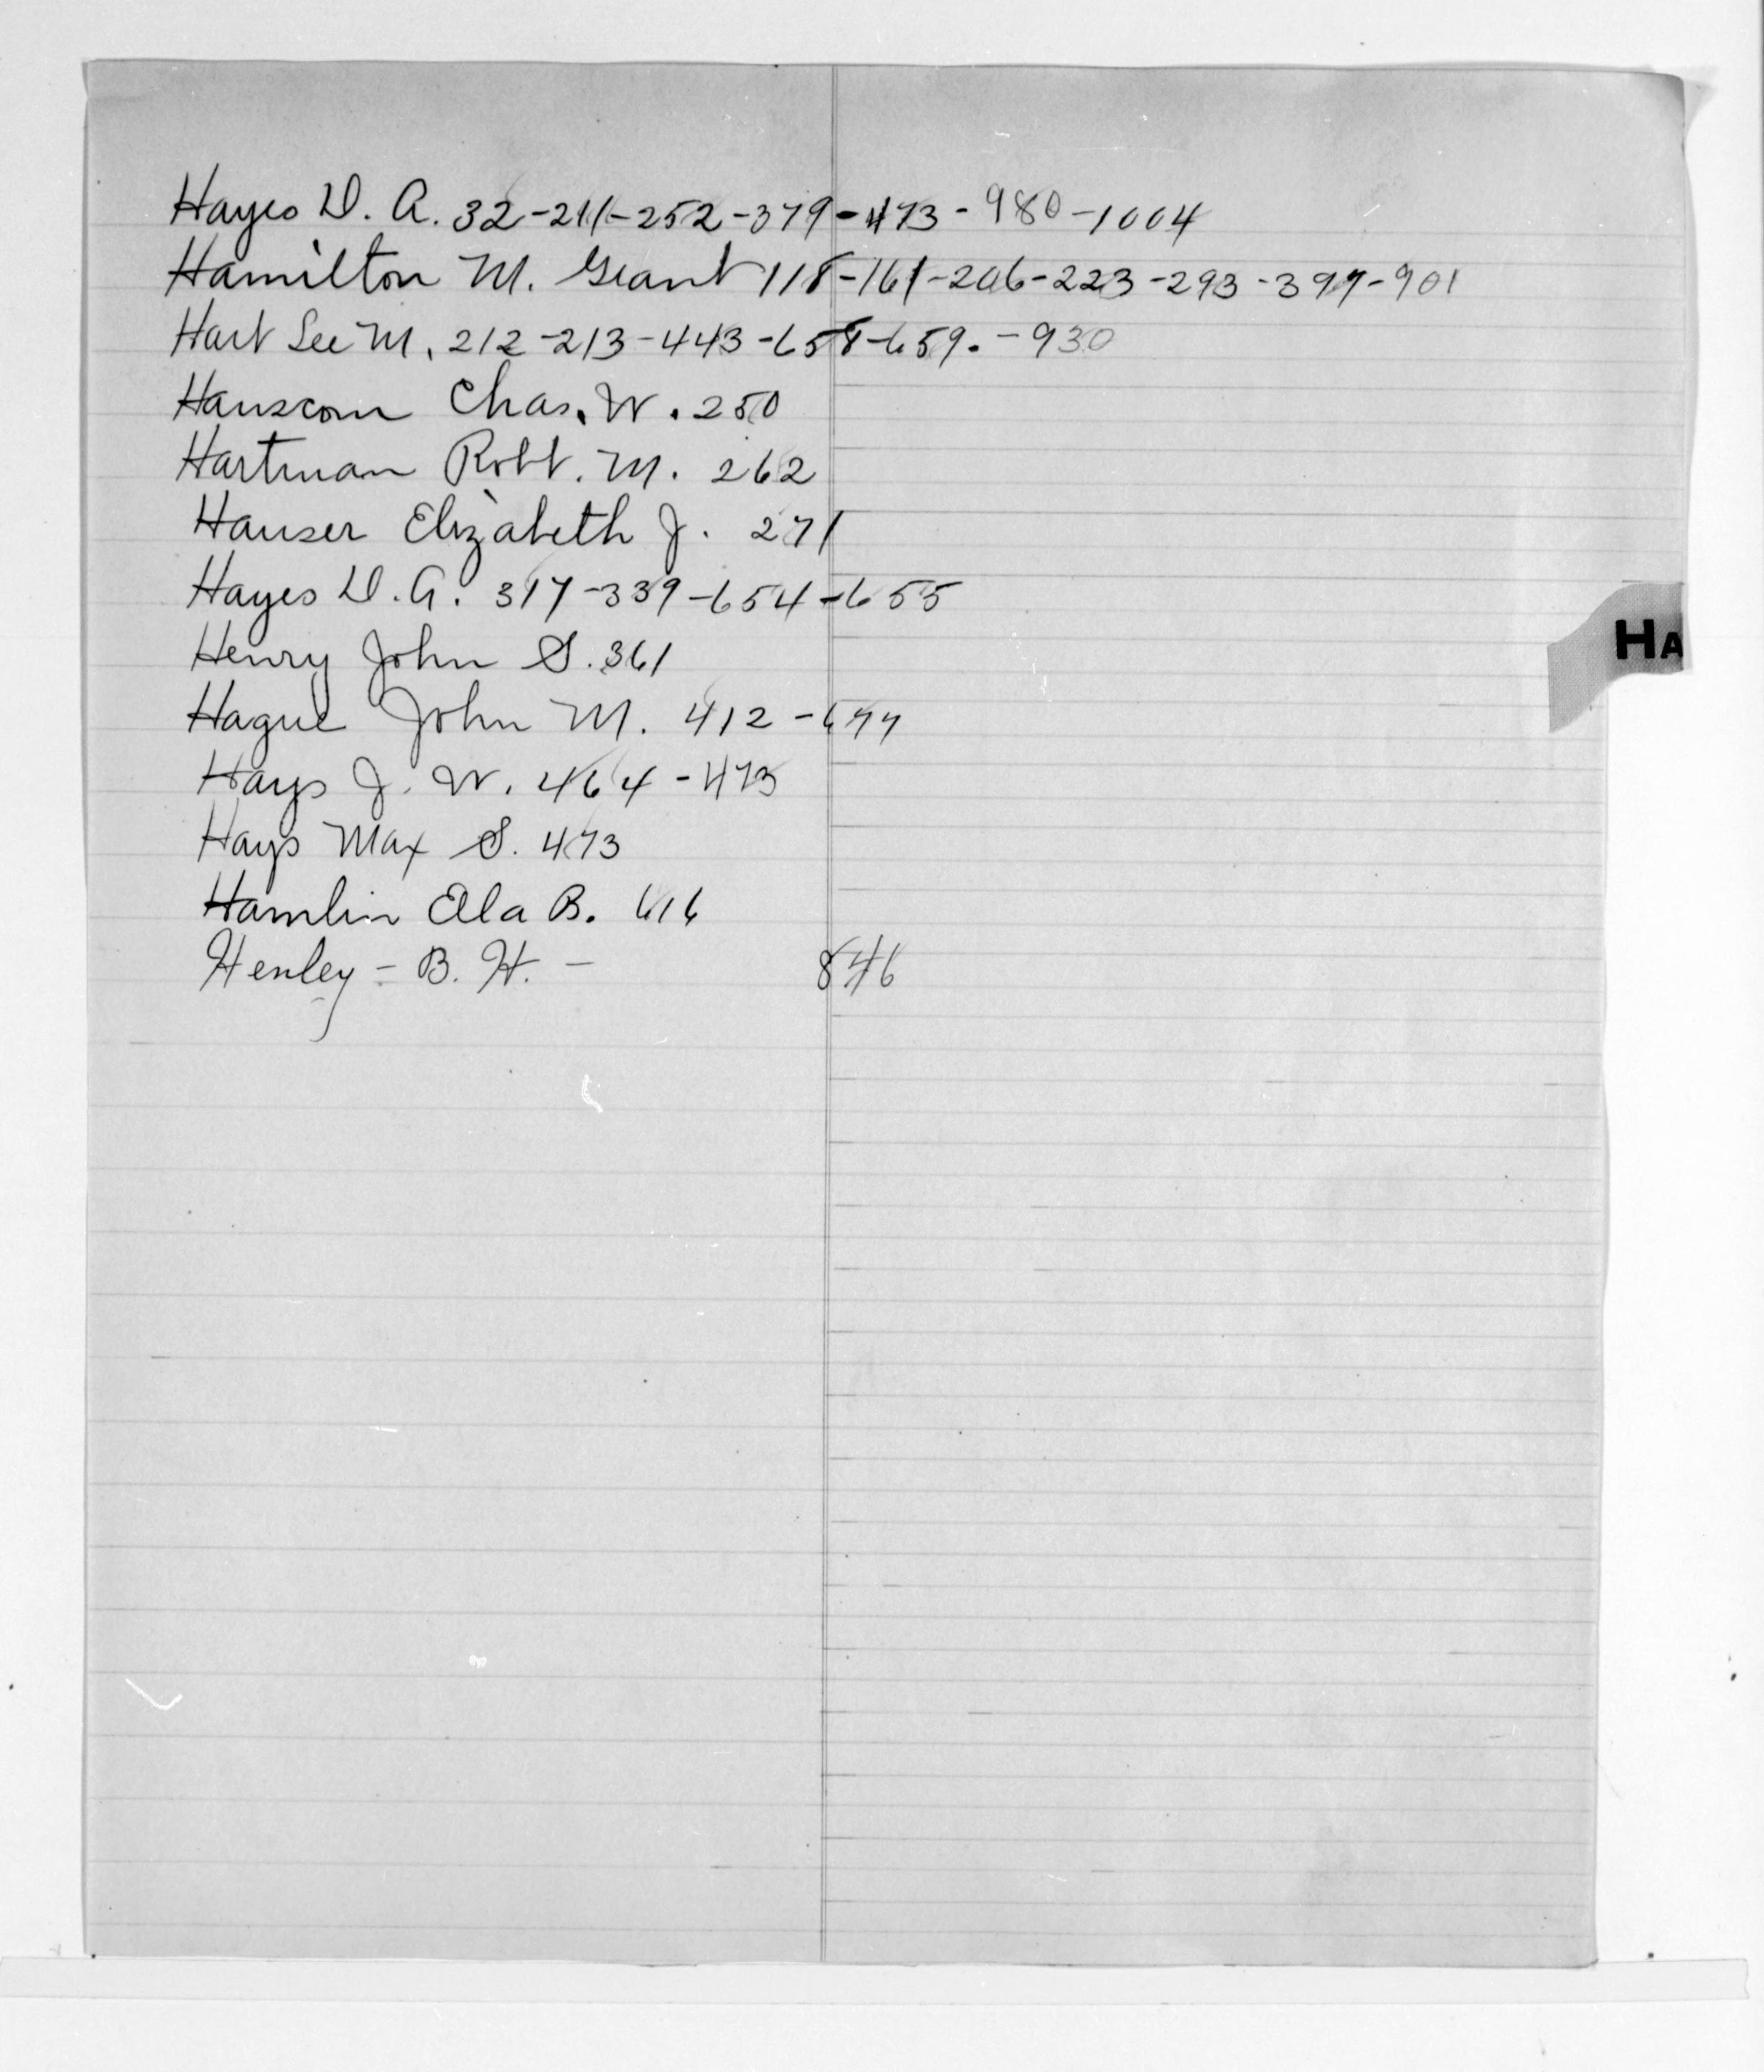 Hayes D. A. 32-211-252-379-473-980-1004
Hamilton M. Grant 118-161-206-223-293-397-901
Hart Lee M. 212-213-443-658-659.-930
Hanscom Chas. W. 250
Hartman Robt. M. 262
Hauser Elizabeth J. 271
Hayes D. A. 317-339-654-655
Henry John S. 361
HA
Hague John M. 412-677
Hays J. W. 464-473
Hays Max S. 473
Hamlin Ella B. 616
Henley - B. H. - 846